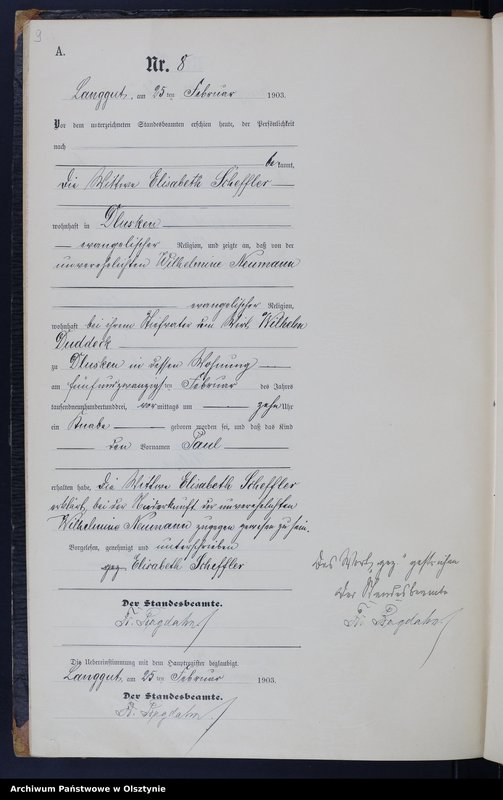 9
A.
Nr. 8
Langgut, am 25 ten Februar 1903.
Vor dem unterzeichneten Standesbeamten erschien heute, der Persönlichkeit
nach
be kannt,
die Wittwe Elisabeth Scheffler
wohnhaft in Dlusken
evangelischer Religion, und zeigte an, daß von der
unverehelichten Wilhelmine Neumann
evangelischer Religion,
wohnhaft bei ihrem Stiefvater dem Wirt Wilhelm
Duddeck
zu Dlusken in dessen Wohnung
am fünfundzwanzigsten Februar des Jahres
tausendneunhundertunddrei, vor mittags um zehn Uhr
ein Knabe geboren worden sei, und daß das Kind
den Vornamen Paul
erhalten habe. Die Wittwe Elisabeth Scheffler
erklärt, bei der Niederkunft der unverehelichten
Wilhelmine Neumann zugegen gewesen zu sein.
Vorgelesen, genehmigt und unterschrieben
gez Elisabeth Scheffler
Das Wort „gez“ gestrichen
Der Standesbeamte
Der Standesbeamte.
Die Uebereinstimmung mit dem Hauptregister beglaubigt.
Langgut, am 25 ten Februar 1903.
Der Standesbeamte.
Archiwum Państwowe w Olsztynie